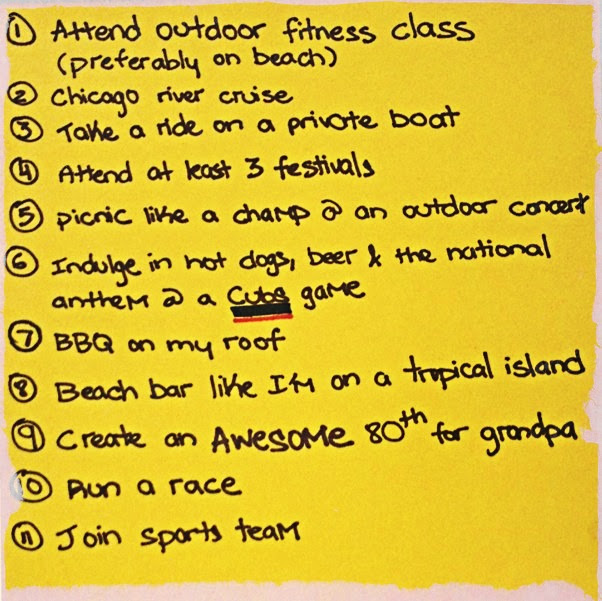 ① Attend outdoor fitness class
(preferably on beach)
② Chicago river cruise
③ Take a ride on a private boat
④ Attend at least 3 festivals
⑤ picnic like a champ @ an outdoor concert
⑥ Indulge in hot dogs, beer & the national
anthem @ a Cubs game
⑦ BBQ on my roof
⑧ Beach bar like I'm on a tropical island
⑨ Create an AWESOME 80th for grandpa
⑩ Run a race
⑪ Join sports team